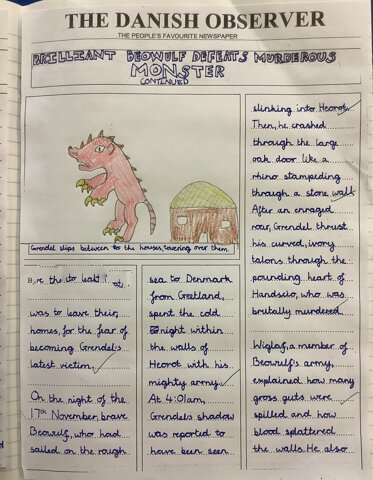 THE DANISH OBSERVER
THE PEOPLE'S FAVOURITE NEWSPAPER
BRILLIANT BEOWULF DEFEATS MURDEROUS
MONSTER
CONTINUED
Grendel slips between to the houses, towering over them.
was to leave their
homes, for the fear of
becoming Grendel's
latest victim.
On the night of the
17th November, brave
Beowulf, who had
sailed on the rough
sea to Denmark
from Geatland,
spent the cold
night within
the walls of
Heorot with his
mighty army.
At 4:01am,
Grendel's shadow
was reported to
have been seen
slinking into Heorot.
Then, he crashed
through the large
oak door like a
rhino stampeding
through a stone wall.
After an enraged
roar, Grendel thrust
his curved, ivory
talons through the
pounding heart of
Handscio, who was
brutally murdered.
Wiglaf, a member of
Beowulf's army,
explained how many
gross guts were
spilled and how
blood splattered
the walls. He also